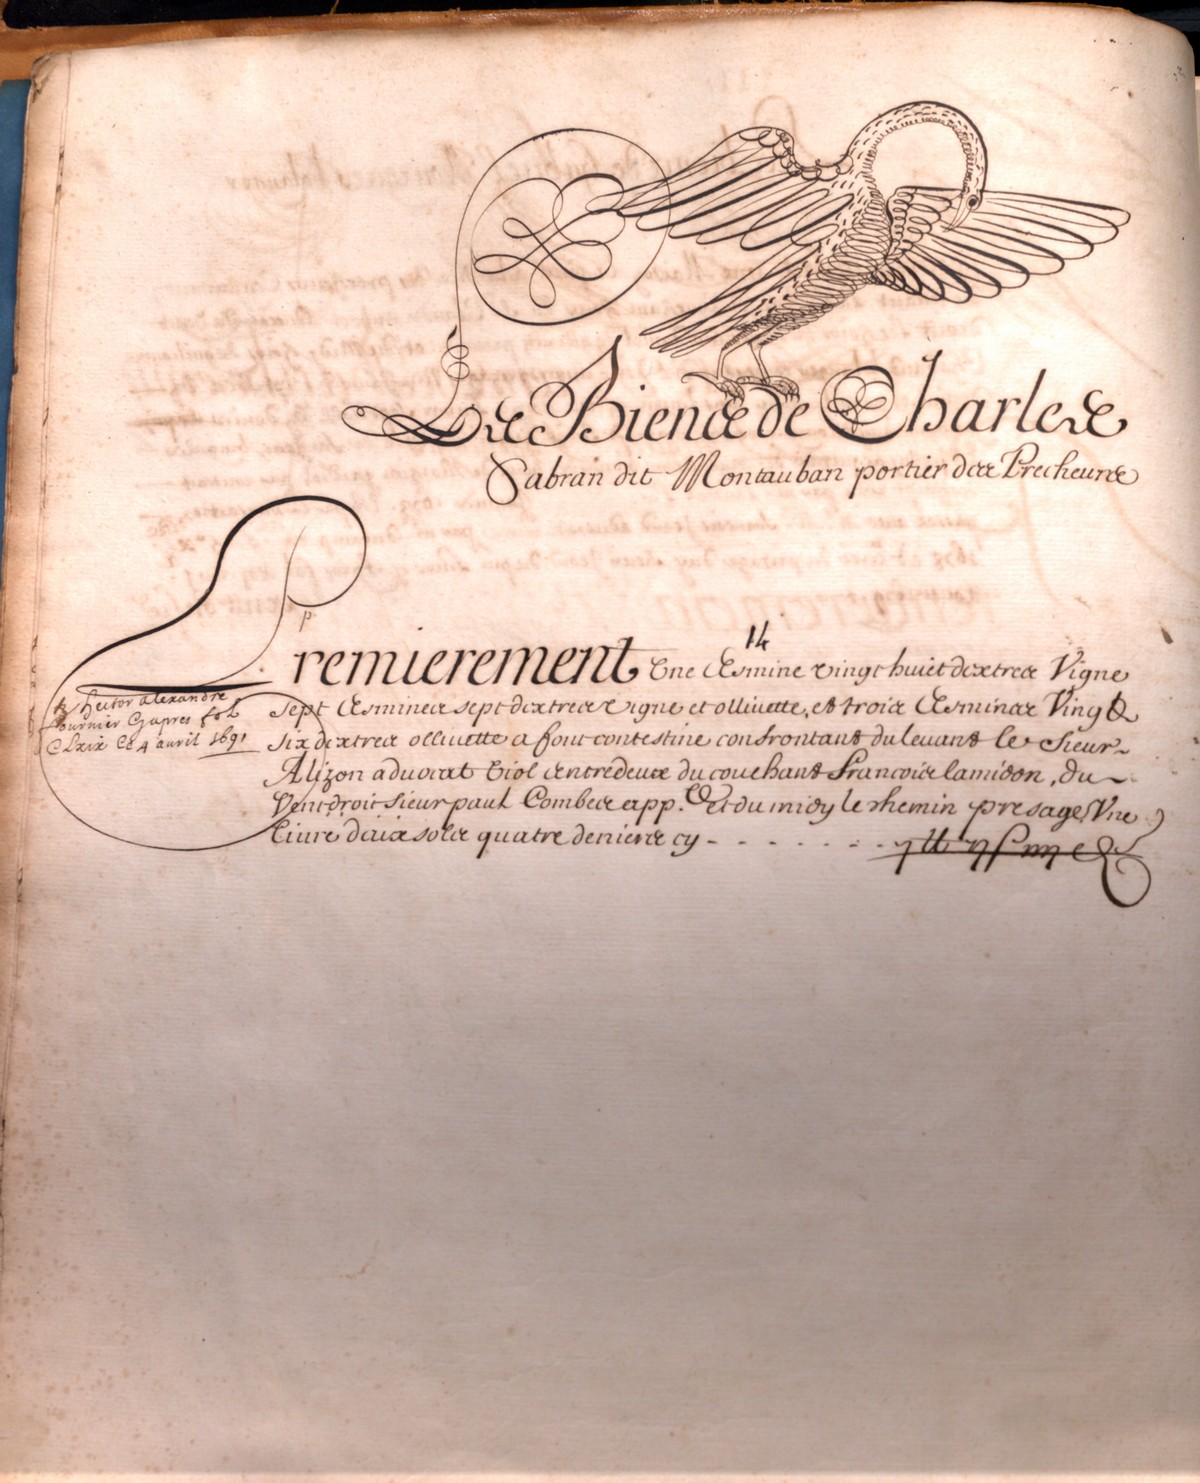 Les Biens de Charles
Sabran dit Montauban portier des Precheurs
14
Premierement Une Esmine vingt huict dextres Vigne
sept Esmines sept dextres vigne et ollivette, et trois Esmines Vingt
six dextres ollivette a font contestine confrontant du levant le sieur
Alizon advocat viol entredeux du couchant francois lamidon, du
Vent droit sieur paul Combes app.re et du midy le chemin presage Vne
livre dix sols quatre deniers cy
A hector alexandre
fournier Cy apres fol
Clxix Ce 4 avril 1691